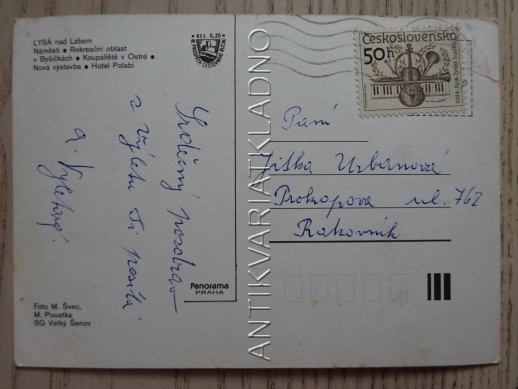 LYSÁ nad Labem
Náměstí • Rekreační oblast
v Byšičkách • Koupaliště v Ostré •
Nová výstavba • Hotel Polabí
Kčs 0,20
Srdečný pozdrav
z výletu Ti posílá
Foto M. Švec,
M. Poustka
SG Velký Šenov
Panorama
PRAHA
ANTIKVARIATKLADNO
Československo
50h
1984 Rok české hudby
Paní
Jitka Urbanová
Prokopova ul. 762
Rakovník